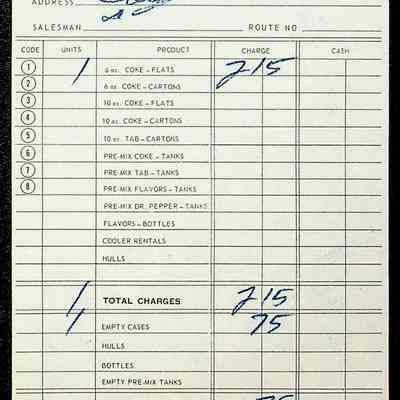 ADDRESS
SALESMAN ROUTE NO
CODE UNITS PRODUCT CHARGE CASH
1 1 6 oz. COKE – FLATS 2 15
2 6 oz. COKE – CARTONS
3 10 oz. COKE – FLATS
4 10 oz. COKE – CARTONS
5 10 oz. TAB – CARTONS
6 PRE-MIX COKE – TANKS
7 PRE-MIX TAB – TANKS
8 PRE-MIX FLAVORS – TANKS
PRE-MIX DR. PEPPER – TANKS
FLAVORS – BOTTLES
COOLER RENTALS
HULLS
1 TOTAL CHARGES 2 15
1 EMPTY CASES 75
HULLS
BOTTLES
EMPTY PRE-MIX TANKS